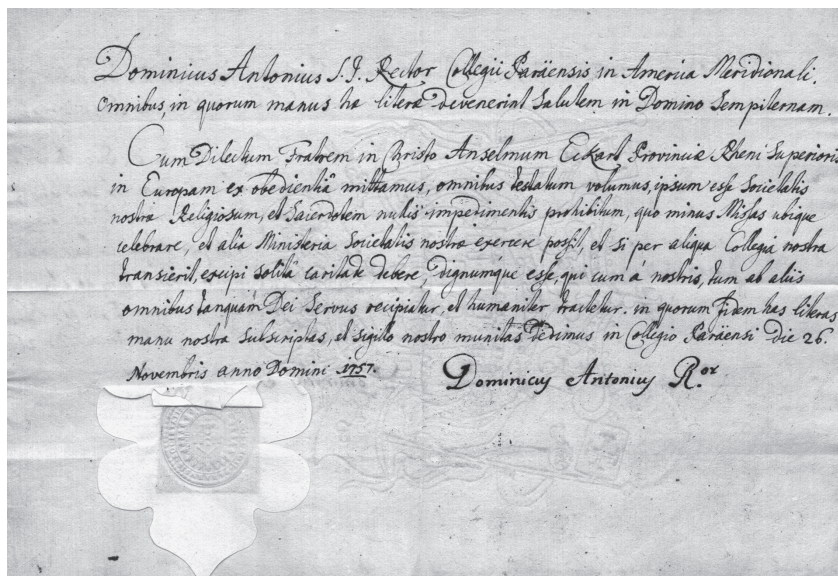 Dominicus Antonius S.J. Rector Collegii Paräensis in America Meridionali.
Omnibus, in quorum manus hæ literæ devenerint Salutem in Domino Sempiternam.
Cum Dilectum Fratrem in Christo Anselmum Eckart Provinciæ Rheni Superioris
in Europam ex obedientiâ mittamus, omnibus testatum volumus, ipsum esse Societatis
nostræ Religiosum, et Sacerdotem nullis impedimentis prohibitum, quo minus Missas ubique
celebrare, et alia Ministeria Societatis nostræ exercere possit, et si per aliqua Collegia nostra
transierit, excipi solitâ caritate debere, dignumque esse, qui cum â nostris, tum ab aliis
omnibus tanquam Dei Servus recipiatur, et humaniter tractetur. in quorum fidem has literas
manu nostra Subscriptas, et sigillo nostro munitas dedimus in Collegio Paräensi die 26.
Novembris anno Domini 1757.
Dominicus Antonius R.or